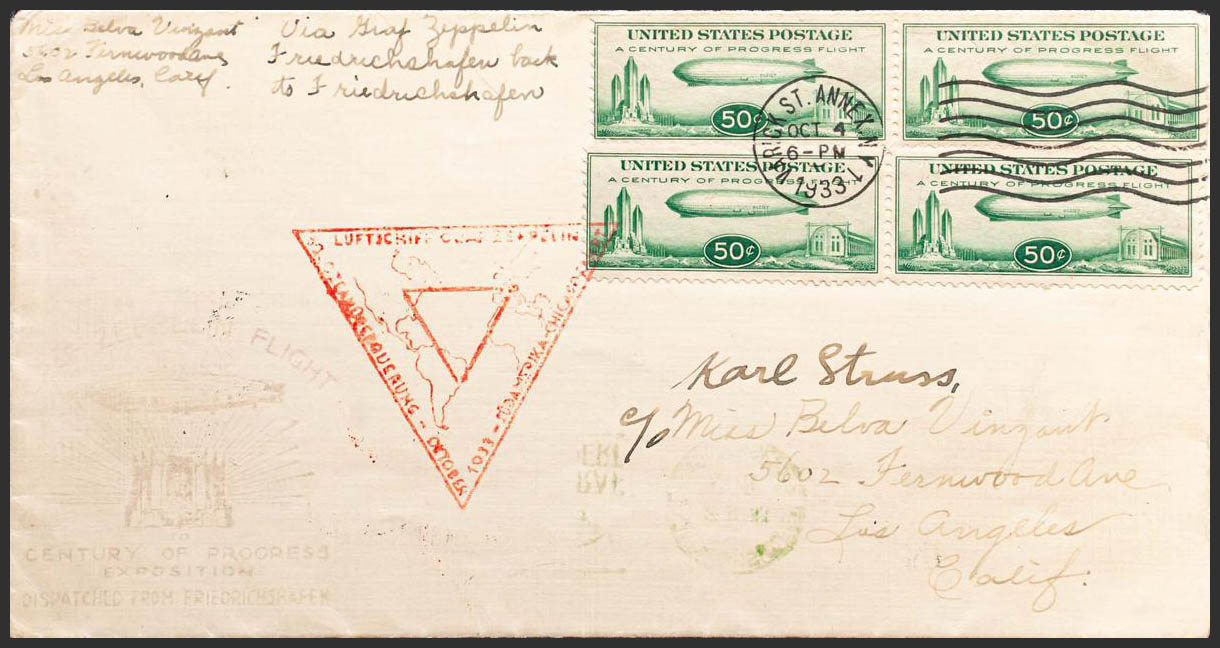 Miss Belva Vinzant
5602 Fernwood Ave
Los Angeles, Calif.
Via Graf Zeppelin
Friedrichshafen back
to Friedrichshafen
UNITED STATES POSTAGE
A CENTURY OF PROGRESS FLIGHT
50¢
UNITED STATES POSTAGE
A CENTURY OF PROGRESS FLIGHT
50¢
VARICK ST. ANNEX, N.Y.
OCT 4
6-PM
1933
UNITED STATES POSTAGE
A CENTURY OF PROGRESS FLIGHT
50¢
UNITED STATES POSTAGE
A CENTURY OF PROGRESS FLIGHT
50¢
LUFTSCHIFF GRAF ZEPPELIN
OKTOBER 1933 - SÜDAMERIKA-CHICAGO
ZEPPELIN FLIGHT
TO
CENTURY OF PROGRESS
EXPOSITION
DISPATCHED FROM FRIEDRICHSHAFEN
Karl Struss,
c/o Miss Belva Vinzant
5602 Fernwood Ave
Los Angeles
Calif.